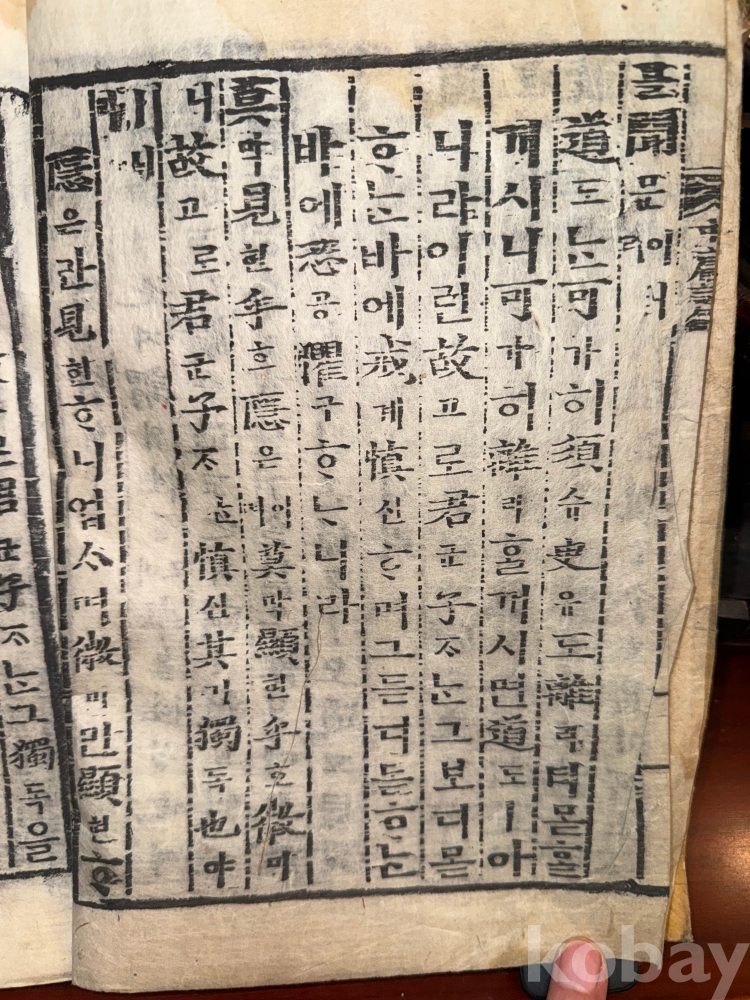 블聞문이니라
中庸諺解
道도ᄂᆞᆫ可가히須슈臾유도離리티몯ᄒᆞᆯ
ᄭᅥ시니可가히離리ᄒᆞᆯᄭᅥ시면道도ㅣ아
니라이런故고로君군子ᄌᆞᄂᆞᆫ그보디몯
ᄒᆞᄂᆞᆫ바에戒계愼신ᄒᆞ며그듣디몯ᄒᆞᄂᆞᆫ
바에恐공懼구ᄒᆞᄂᆞ니라
莫막見현乎호隱은이며莫막顯현乎호微미
니故고로君군子ᄌᆞᄂᆞᆫ愼신其기獨독也야
隱은만見현ᄒᆞ니업ᄉᆞ며微미만顯현ᄒᆞ
君군子ᄌᆞᄂᆞᆫ그獨독을
kobay